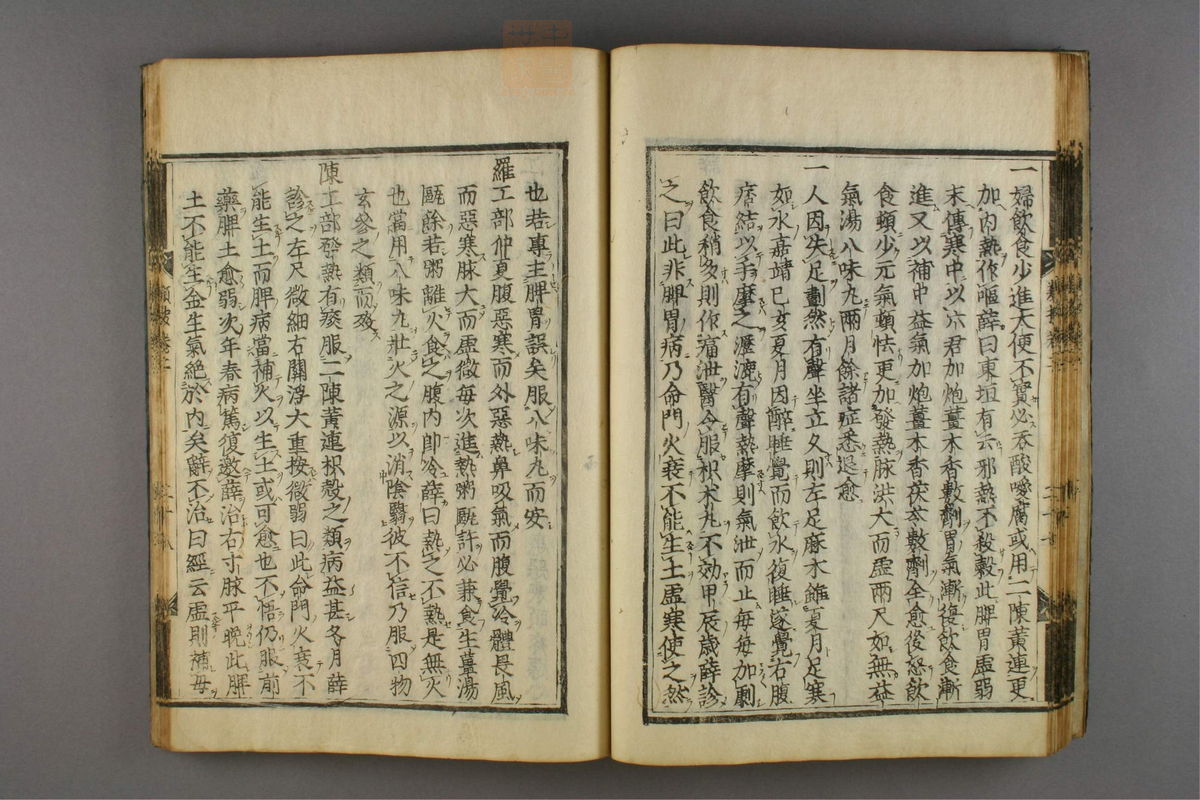 一婦飲食少進大便不實必吞酸噯腐或用二陳黃連更
加内熱作嘔薛曰東垣有云邪熱不殺穀此脾胃虛弱
末傳寒中以六君加炮薑木香數劑胃氣漸復飲食漸
進又以補中益氣加炮薑木香茯苓數劑全愈後怒飲
食頓少元氣頓怯更加發熱脉洪大而虛兩尺如無益
氣湯八味丸兩月餘諸症悉退愈
一人因失足劃然有聲坐立久則左足麻木雖夏月足寒
如氷嘉靖己亥夏月因醉睡覺而飲水復睡遂覺右腹
痞結以手摩之瀝漉有聲熱摩則氣泄而止每每加劇
飲食稍多則作痛泄醫令服枳朮丸不効甲辰歲薛診
之曰此非脾胃病乃命門火衰不能生土虛寒使之然
也若專主脾胃誤矣服八味丸而安
羅工部仲夏腹惡寒而外惡熱鼻吸氣而腹覺冷體畏風
而惡寒脉大而虛微每次進熱粥甌許必兼食生薑湯
甌餘若粥離火食之腹内即冷薛曰熱之不熱是無火
也當用八味丸壯火之源以消陰翳彼不信乃服四物
玄參之類而歿
陳工部發熱有痰服二陳黃連枳殼之類病益甚冬月薛
診之左尺微細右關浮大重按微弱曰此命門火衰不
能生土而脾病當補火以生土或可愈也不悟仍服前
藥脾土愈弱次年春病篤復邀薛治右寸脉平晚此脾
土不能生金生氣絕於内矣辭不治曰經云虛則補母